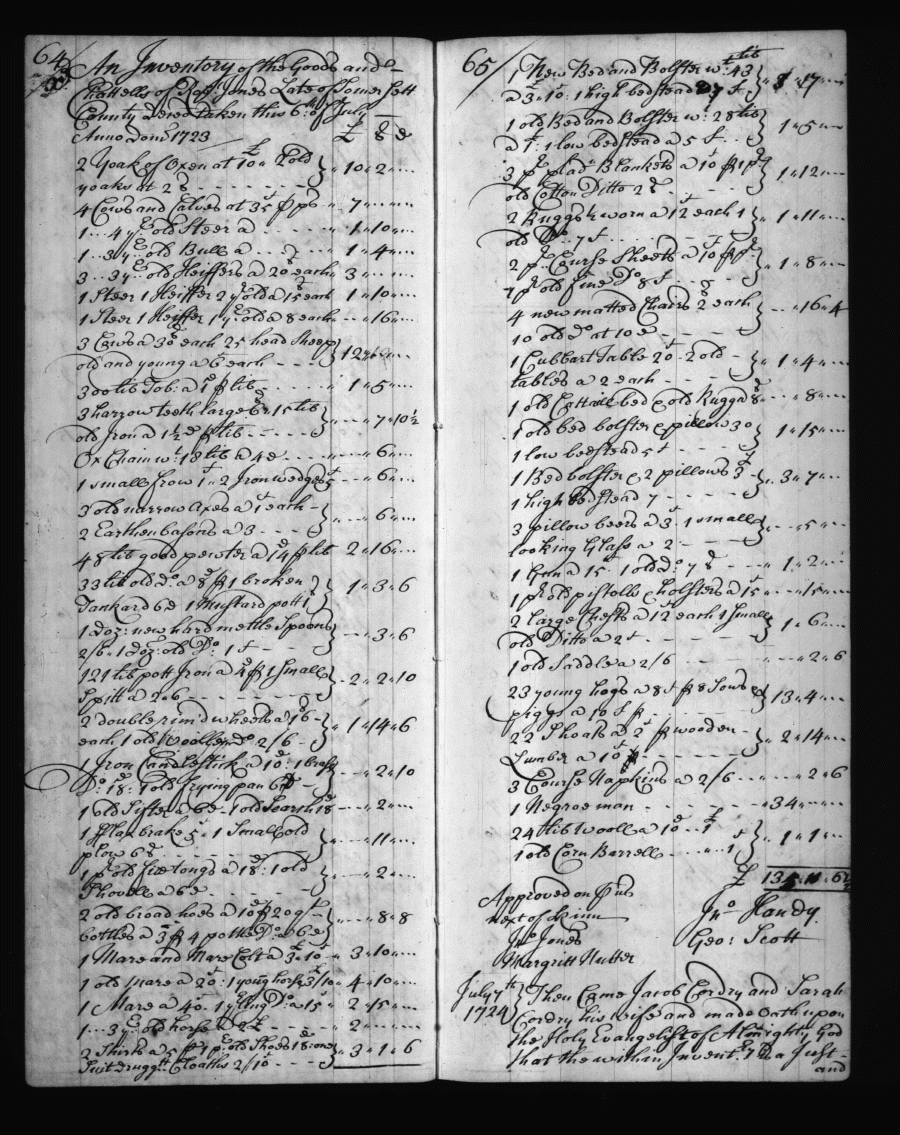 64
An Inventory of the Goods and
Chattells of Jones Late of Somersett
County Deced taken this 6th of July
Anno Dom 1723 £ S d
2 Yoak of Oxen at £ old } 10 " 2 "
yoaks at 2 s
4 Cows and Calves at 35 s p ps 7
1 - 4 yr old Steer a 1 " 10
1 - 3 yr old Bull a 1 " 4
3 - 3 yr old Heiffers a 20 s each 3
1 Steer 1 Heiffer 2 yr old a 15 each 1 " 10
1 Steer 1 Heiffer 1 yr old a 8 each 16
3 Cows a 30 s each 25 head Sheep } 12
old and young a 6 each
300 lib Tob: a 1d p lib 1 " 5
3 harrow teeth large 6d 15 lib } 7 " 10½
old Iron a 1½ d p lib
Ox Chain wt 18 lib a 4 d 6
1 small frow 1 " 2 Iron wedges 5 6
3 old narrow Axes a 1 each } 6
2 Earthen basons a 3
48 lib good pewter a 14d p lib 2 " 16
33 lib old Do a 8d p 1 broken } 1 " 3 " 6
Tankard 6d 1 Mustard pott 1
1 doz: new hard mettle Spoons } 3 " 6
2/6 1 doz: old Do: 1 s
121 lib pott Iron a 4d p 1 Small } 2 " 2 " 10
Spitt a 2 " 6
2 double rim'd wheels a 16 } 1 " 14 " 6
each 1 old woollen Do 2/6
1 Iron Candlestick a 10d: 1 brass } 2 " 10
Do: 18: 1 old frying pan 6d
1 old Sifter a 6d 1 old Searsh 18 2
1 fflax brake 5 1 Small old } 11
plow 6 s
1 pr old fire tongs a 18: 1 old } 2
Shovell a 6 d
2 old broad hoes a 10d p 2 qt } 8 " 8
bottles a 3 p 4 pottle Do a 6 d
1 Mare and Mare Colt a 3 " 10 3 " 10
1 old Mare a 20: 1 young horse 3/10 4 " 10
1 Mare a 40 1 yrling Do a 15 2 " 15
1 - 3 yr old horse a 2 £ 2
2 Shirts a 5 p 1 pr old Shoes 18: one } 3 " 1 " 6
Suit druggtt Cloaths 2/10
65
1 New Bed and Bolster wt 43 lib } 8 " 17
a 3 " 10: 1 high bedstead 7 s
1 old Bed and Bolster wt: 28 lib } 1 " 5
a £: 1 low bedstead a 5 s
3 pr plad Blankets a 10 p 1 pr } 1 " 12
old Cotton Ditto 2 s
2 Ruggs ½ worn a 12 each 1 } 1 " 11
old Do 7 s
2 pr Course Sheets a 10 p pr } 1 " 8
1 pr old fine Do 8 s
4 new matted Chairs 2 each } 16 " 4
10 old Do at 10 d
1 Cubbart Table 20 2 old } 1 " 4
tables a 2 each
1 old Cattail bed & old Rugg a 8 8
1 old bed bolster & pillow 30 } 1 " 15
1 low bedstead 5 s
1 Bed bolster & 2 pillows 3 } 3 " 7
1 high Bedstead 7
3 pillow beers a 3 1 small } 5
looking Glass a 2
1 Gunn a 15 1 old Do: 7 s 1 " 2
1 pr old pistolls & holsters a 15 15
2 large Chests a 12 each 1 Small } 1 " 6
old Ditto a 2 s
1 old Saddle a 2/6 2 " 6
23 young hogs a 8 s p 8 Sows & } 13 " 4
piggs a 10 s p
22 Shoats a 2 s p wooden } 2 " 14
Lumber a 10 s
3 Course Napkins a 2/6 2 " 6
1 Negroe man 34
24 lib Wooll a 10 1 } 1 " 1
1 old Corn Barrell 1
£ 135 " 11 " 6½
Approved on by us
next of Kinn Jno Handy
Jno Jones Geo: Scott
Margritt Nutter
July 7th } Then Came Jacob Cordry and Sarah
1724 } Cordry his wife and made Oath upon
the Holy Evangelist of Almighty God
that the within Invent: is a Just
and